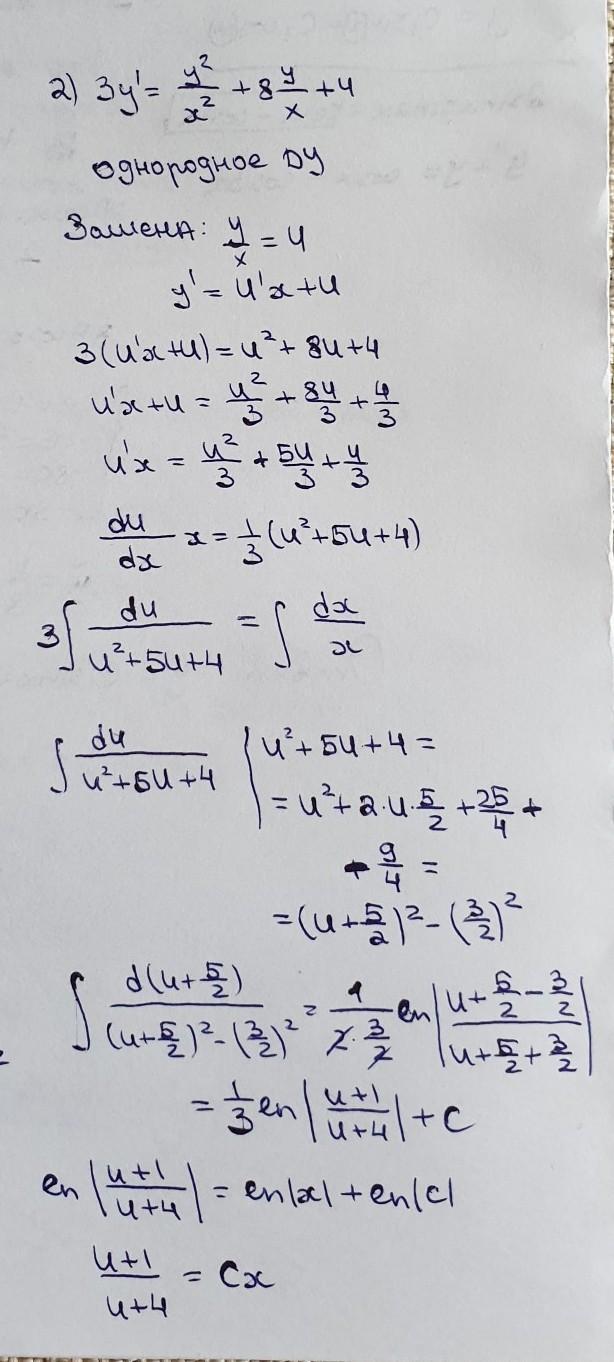 2) 3y' = y²/x² + 8 y/x + 4
однородное ДУ
Замена: y/x = u
y' = u'x + u
3(u'x + u) = u² + 8u + 4
u'x + u = u²/3 + 8u/3 + 4/3
u'x = u²/3 + 5u/3 + 4/3
du/dx x = 1/3 (u² + 5u + 4)
3∫ du/(u² + 5u + 4) = ∫ dx/x
∫ du/(u² + 5u + 4) | u² + 5u + 4 =
= u² + 2·u·5/2 + 25/4 -
- 9/4 =
= (u + 5/2)² - (3/2)²
∫ d(u + 5/2)/((u + 5/2)² - (3/2)²) = 1/(2·3/2) ln |(u + 5/2 - 3/2)/(u + 5/2 + 3/2)|
= 1/3 ln |(u+1)/(u+4)| + C
ln |(u+1)/(u+4)| = ln|x| + ln|C|
(u+1)/(u+4) = Cx